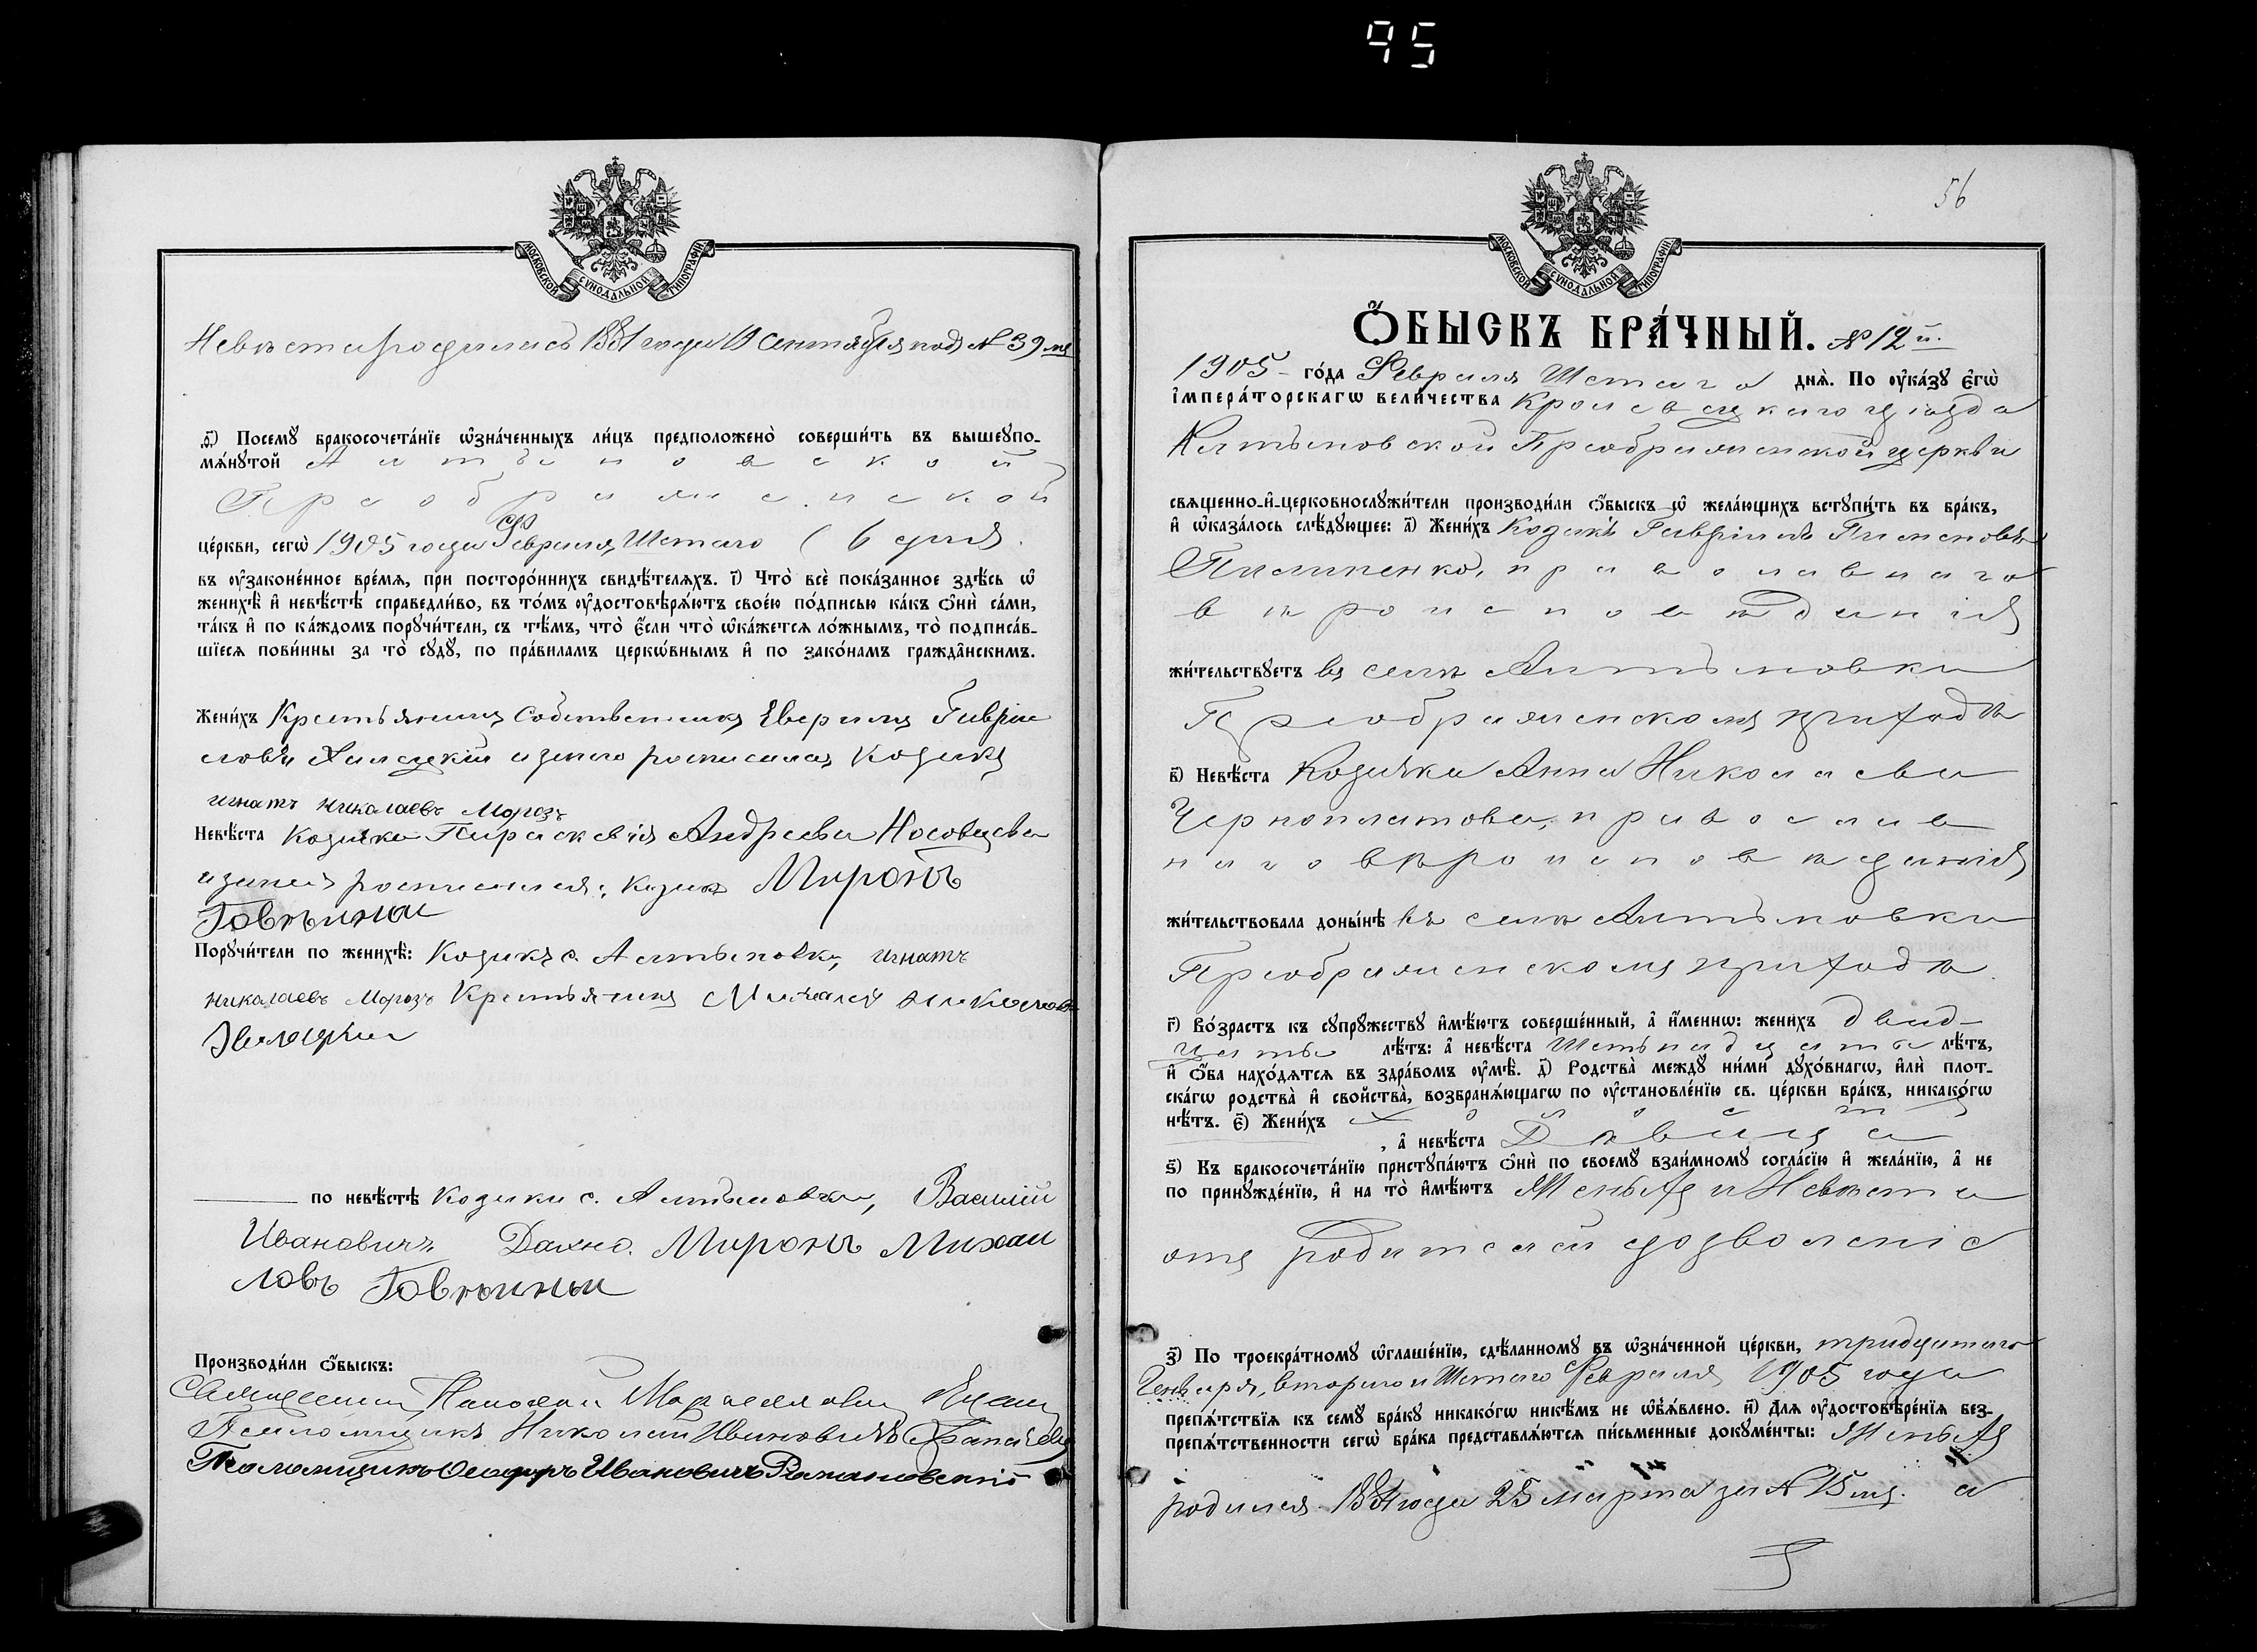 95
МОСКОВСКОЙ СѴНОДАЛЬНОЙ ТИПОГРАФІИ
Невѣста родилась 1881 года 19 Сентября подъ № 39 мъ
д҃) Посемꙋ бракосочета́нїе ѡ҆зна́ченныхъ ли́цъ предположено̀ соверши́ть въ вышеꙋпо-
мѧ́нꙋтой Алтыновской
Преображенской
це́ркви, сегѡ̀ 1905 года Февраля Шестаго (6 дня.
въ ᲂу҆законе́нное вре́мѧ, при посторо́ннихъ свидѣ́телѧхъ. і҃) Что̀ всѐ пока́занное здѣ́сь ѡ҆
женихѣ̀ и҆ невѣ́стѣ справедли́во, въ то́мъ ᲂу҆достовѣрѧ́ютъ свое́ю по́дписью ка́къ ѻ҆нѝ са́ми,
та́къ и҆ по ка́ждомъ порꙋчи́тели, съ тѣ́мъ, что̀ є҆́сли что̀ ѡ҆ка́жетсѧ ло́жнымъ, то̀ подписа́в-
шїесѧ пови́нны за то̀ сꙋдꙋ̀, по пра́виламъ церкѡ́внымъ и҆ по зако́намъ гражда̂нскимъ.
Жени́хъ Крестьянинъ Собственникъ Гаврі
ловъ и за него росписался Козакъ
игнатъ николаевъ Морозъ
Невѣ́ста Козачка Параскевія Андреева Носовцева
и за неё росписался: козакъ Миронъ
Говяьинъи
Порꙋчи́тели по женихѣ̀: Козакъ с. Алтыновки, игнатъ
николаевъ Морозъ Крестьянинъ Михаилъ
Халецкии
по невѣ́стѣ Козаки с. Алтыновки, Василій
Ивановичъ Дахно. Миронъ Михаи
ловъ
Производи́ли ѻ҆́быскъ:
Священникъ
Псаломщикъ Николай Ивановичъ
Псаломщикъ Ивановичъ Романовскій
56
МОСКОВСКОЙ СѴНОДАЛЬНОЙ ТИПОГРАФІИ
Ѻ҆́БЫСКЪ БРА́ЧНЫЙ. № 12 й.
1905 го́да Февраля Шестаго днѧ̀. По ᲂу҆ка́зꙋ є҆гѡ̀
і҆мпера́торскагѡ вели́чества Кролевецкаго уѣзда
Алтыновской Преображенской церкви
свѧщенно-и҆-церковнослꙋжи́тели производи́ли ѻ҆́быскъ ѡ҆ жела́ющихъ встꙋпи́ть въ бра́къ,
и҆ ѡ҆каза́лось слѣ́дꙋющее: а҃) Жени́хъ Козакъ Гавріилъ Пименовъ
Пилипенко, православнаго
вѣроисповѣданія
жи́тельствꙋетъ въ селѣ Алтыновки
Преображенскомъ приходѣ
в҃) Невѣ́ста Козачка Анна Николаева
Черноплатова, православ
наго вѣроисповѣданія
жи́тельствовала доны́нѣ въ селѣ Алтыновки
Преображенскомъ приходѣ.
г҃) Во́зрастъ къ сꙋпрꙋ́жествꙋ и҆мѣ́ютъ соверше́нный, а҆ и҆́меннѡ: жени́хъ двад-
цать лѣ́тъ: а҆ невѣ́ста Шестьнадцать лѣ́тъ,
и҆ ѻ҆́ба нахо́дѧтсѧ въ здра́вомъ ᲂу҆мѣ̀. д҃) Родства̀ междꙋ̀ ни́ми дꙋхо́внагѡ, и҆лѝ плот-
ска́гѡ родства̀ и҆ свойства̀, возбранѧ́ющагѡ по ᲂу҆становле́нїю св. це́ркви бра́къ, никако́гѡ
нѣ́тъ. є҃) Жени́хъ холостъ
, а҆ невѣ́ста Дѣвица
ѕ҃) Къ бракосочета́нїю пристꙋпа́ютъ ѻ҆нѝ по своемꙋ̀ взаи́мномꙋ согла́сїю и҆ жела́нїю, а҆ не
по принꙋжде́нїю, и҆ на то̀ и҆мѣ́ютъ Женихъ и Невѣста
отъ родителей дозволеніе
з҃) По троекра́тномꙋ ѡ҆глаше́нїю, сдѣ́ланномꙋ въ ѡ҆зна́ченной це́ркви, тридцатаго
Генваря, втораго и Шестаго Февраля 1905 года
препѧ́тствїѧ къ семꙋ̀ бра́кꙋ никако́гѡ никѣ́мъ не ѡ҆б̾ѧ́влено. и҃) Длѧ ᲂу҆достовѣре́нїѧ без-
препѧ́тственности сегѡ̀ бра́ка представлѧ́ютсѧ пи́сьменные докꙋме́нты: Женихъ
родился 1884 года 25 марта за № 15 мъ. а